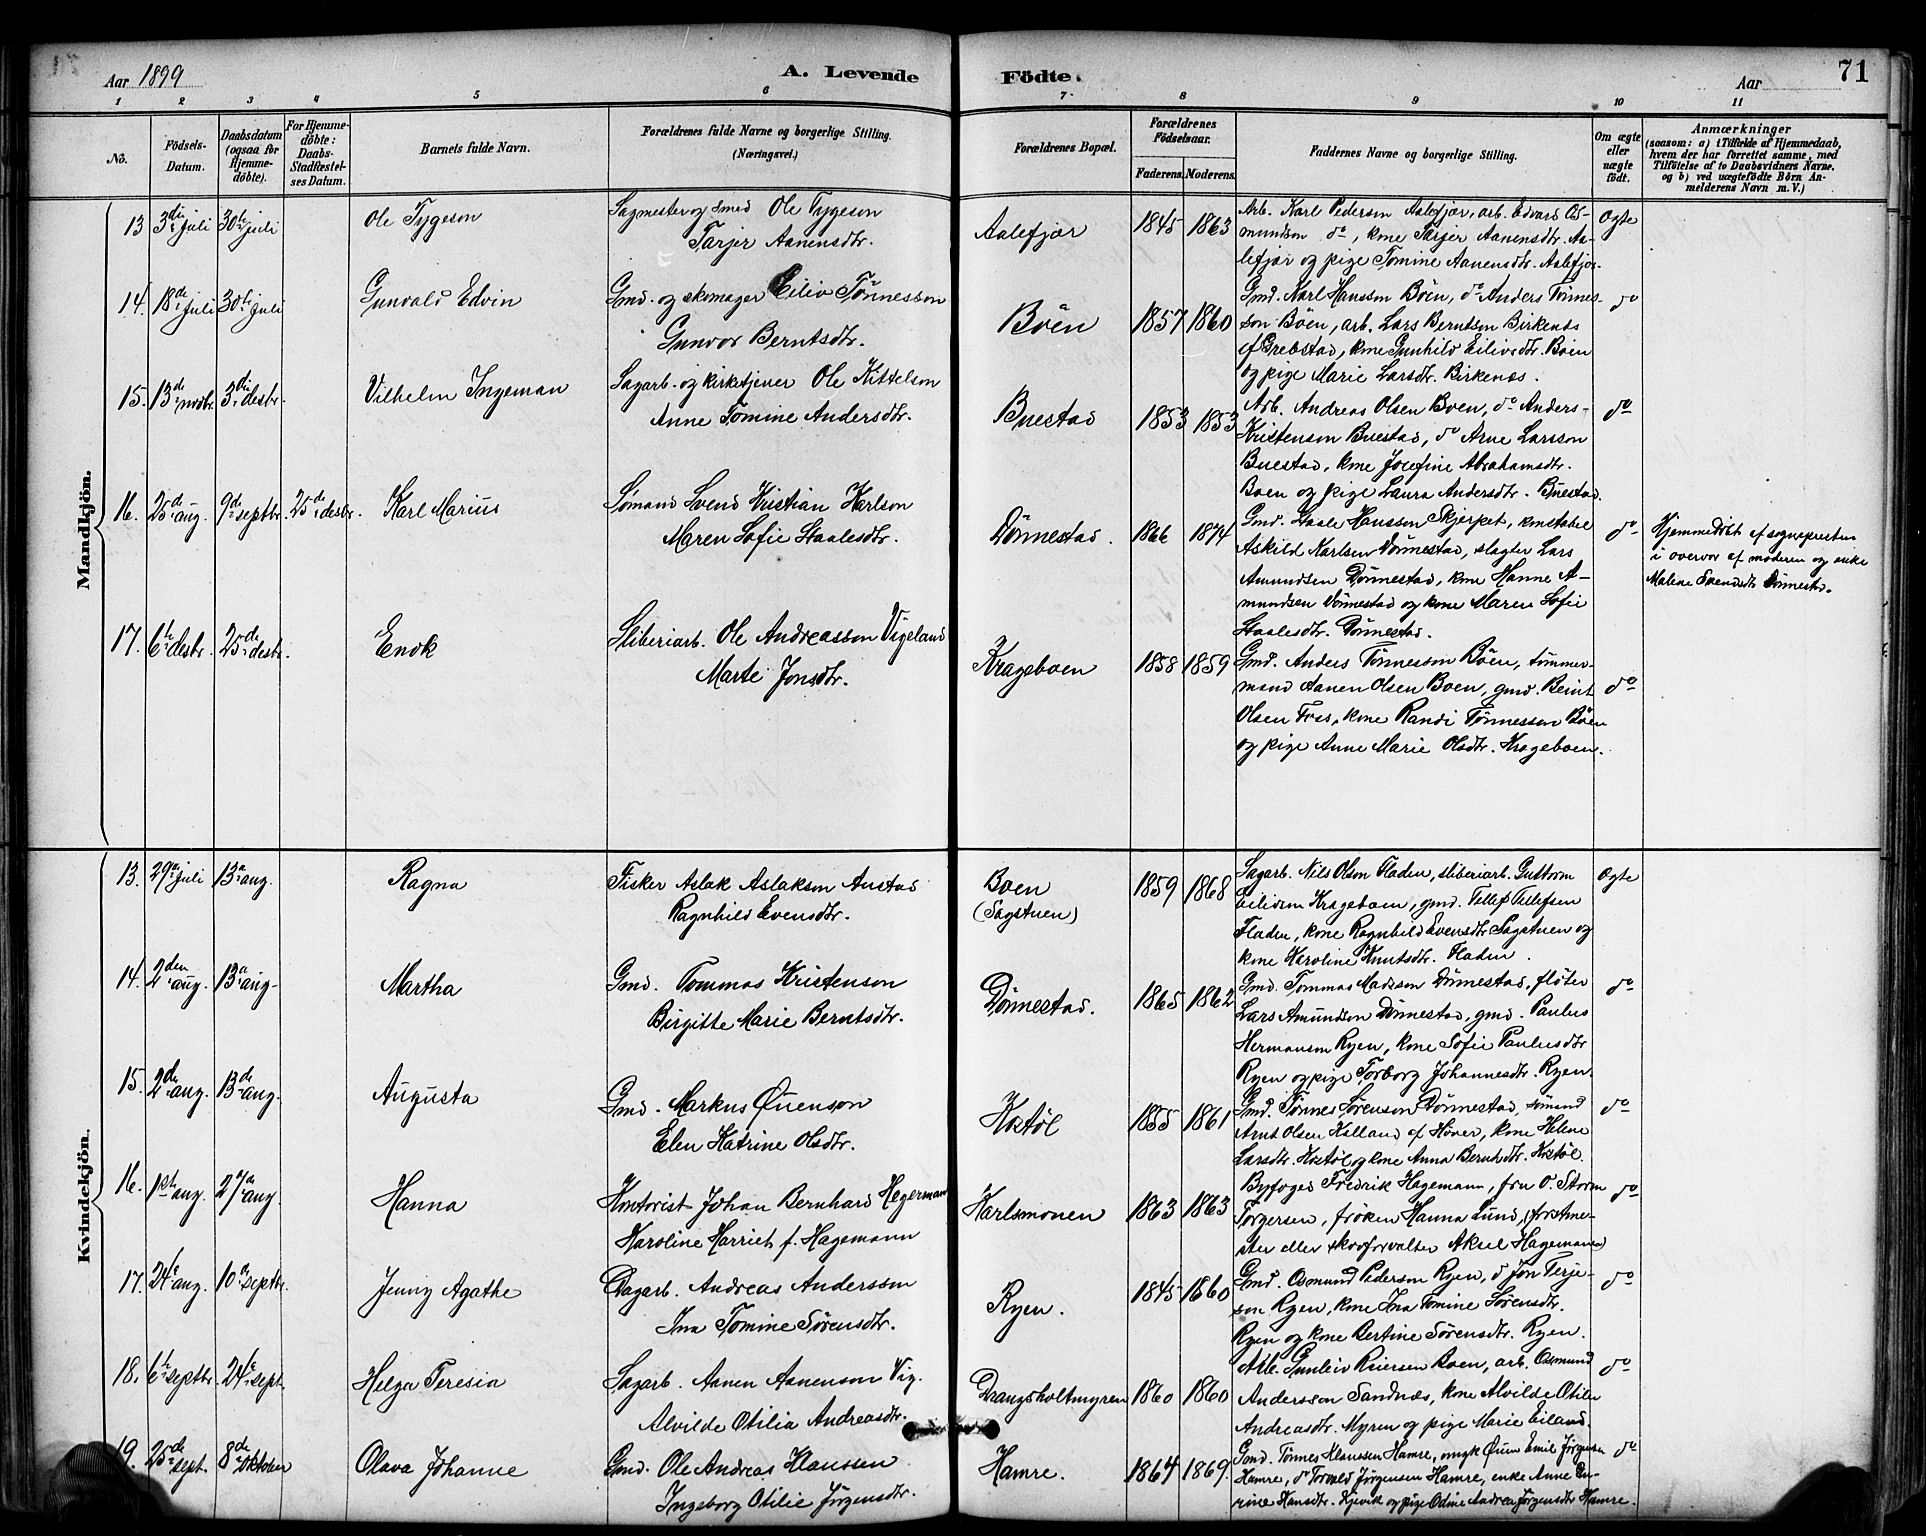 Aar 1899
A. Levende
Födte.
Aar
71
1 2 3 4 5 6 7 8 9 10 11
No.
Födsels-
Datum.
Daabsdatum
(ogsaa for
Hjemme-
döbte).
For Hjemme-
döbte:
Daabs-
Stadfestel-
ses Datum.
Barnets fulde Navn.
Forældrenes fulde Navne og borgerlige Stilling.
(Næringsvei.)
Forældrenes Bopæl.
Forældrenes
Födselsaar.
Faderens. Moderens.
Faddernes Navne og borgerlige Stilling.
Om ægte
eller
uægte
födt.
Anmærkninger
(saasom: a) i Tilfælde af Hjemmedaab,
hvem der har forrettet samme, med
Tilföielse af to Daabsvidners Navne,
og b) ved uægtefödte Börn An-
melderens Navn m. V.)
Mandkjön.
13 3di juli 30te juli Ole Tygeson
Sagmester og smed Ole Tygeson
Tarjer Aanensdtr.
Aalefjær 1845 1863
Arb. Karl Pedersen Aalefjær, arb. Edvard Os-
mundsen do, kone Tarjer Aanensdtr. Aa-
lefjær og pige Tomine Aanensdtr. Aalefjær.
Ægte
14. 18de juli 30te juli Gunvald Edvin
Gmd. og skomager Eiliv Tönnesson
Gunvor Berntsdtr.
Böen 1857 1860
Gmd. Karl Hansson Böen, do Anders Tönnes-
son Böen, arb. Lars Berntson Birkenæs
af Grebstad, kone Gunhild Eilivsdtr. Böen
og pige Marie Larsdtr. Birkenæs.
do
15. 13de novbr. 3di desbr. Vilhelm Ingeman
Sagarb. og kirketjener Ole Kittelson
Anne Tomine Andersdtr.
Buestad 1853 1853
Arb. Andreas Olsen Boen, do Anders
Kristenson Buestad, do Arne Larsson
Buestad, kone Josefine Abrahamsdtr.
Boen og pige Laura Andersdtr. Buestad.
do
16. 25de aug. 9de septbr. 25de desbr. Karl Marius
Sömand Svend Kristian Karlson
Maren Sofie Staalesdtr.
Dönnestad. 1866 1874
Gmd. Staale Hansson Skjerpet, konstabel
Askild Karlsen Dönnestad, slagter Lars
Amundsen Dönnestad, kone Hanne A-
mundsen Dönnestad og kone Maren Sofie
Staalesdtr. Dönnestad.
do
Hjemmedöbt af sognepresten
i overvær af moderen og enke
Malene Svendsdtr Dönnestad.
17. 6te desbr. 25de desbr. Enok
Sliberiarb. Ole Andreasson Vigeland
Marte Jonsdtr.
Krageboen 1858 1859
Gmd. Anders Tönnesson Böen, tömmer-
mand Aanen Olsen Boen, gmd. Bernt
Olsen Foss, kone Randi Tönnesson Böen
og pige Anne Marie Olsdtr. Krageboen.
do
Kvindekjön.
13. 29de juli 13de aug. Ragna
Fisker Aslak Aslaksen Austad
Ragnhild Evensdtr.
Boen
(Sagstuen)
1859 1868
Sagarb. Nils Olson Fladen, sliberiarb. Guttorm
Eilidsen Krageboen, gmd. Tellef Tellefsen
Fladen, kone Ragnhild Evensdtr Sagstuen og
kone Karoline Knutsdtr. Fladen.
Ægte
14. 2den aug. 13de aug. Martha
Gmd. Tommas Kristenson
Birgitte Marie Berntsdtr.
Dönnestad. 1865 1862
Gmd. Tommas Madsson Dönnestad, flöter
Lars Amundson Dönnestad, gmd. Paulus
Hermanson Ryen, kone Sofie Paulusdtr
Ryen og pige Torborg Johannesdtr. Ryen.
do
15. 2de aug. 13de aug. Augusta
Gmd. Markus Ouenson
Elen Katrine Olsdtr.
Kostöl 1855 1861
Gmd. Tönnes Sörenson Dönnestad, sömand
Arnt Olsen Kalland af Höver, kone Helene
Larsdtr. Kostöl og kone Anna Berntsdtr. Kostöl.
do
16. 1ste aug. 27de aug. Hanna
Kontorist Johan Bernhard Hegermann
Karoline Harriet f. Hagemann
Karlsmonen 1863 1863
Byfoged Fredrik Hagemann, fru O. Storm
Torgersen, fröken Hanna Lund, (forstme-
ster eller skovforvalter Aksel Hagemann)
do
17. 24de aug. 10de septbr. Jenny Agathe
Dagarb. Andreas Andersson
Ina Tomine Sörensdtr.
Ryen. 1845 1860
Gmd. Osmund Pederson Ryen, do Jon Terje-
son Ryen, kone Ina Tomine Sörensdtr.
Ryen og kone Bertine Sörensdtr. Ryen.
do
18. 6te septbr. 24de sept. Helga Teresia
Sagarb. Aanen Aanenson Vig.
Alvilde Otilia Andreasdtr.
Drangsholtmyren 1860 1860
Arb. Gunleiv Reiersen Boen, arb. Osmund
Andersson Sandnæs, kone Alvilde Otilie
Andreasdtr. Myren og pige Marie Eiland.
do
19. 25de sept. 8de oktober Olava Johanne
Gmd. Ole Andreas Klaussen
Ingeborg Otilie Jörgensdtr.
Hamre. 1864 1869.
Gmd. Tönnes Klaussen Hamre, ungk Örum Emil Jörgensen
Hamre, do Torvald Jörgensen Hamre, enke Anne Gu-
rine Hansdtr. Kjevik og pige Odine Andrea Jörgensdtr Hamre.
do